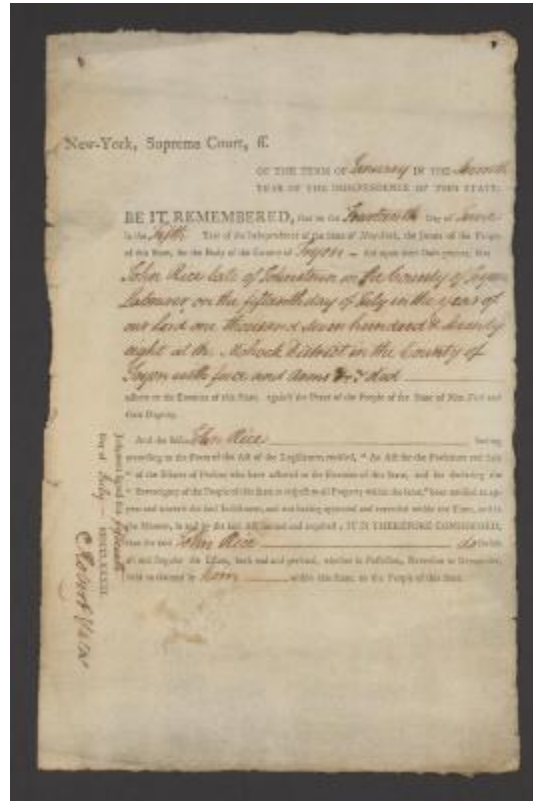 New-York, Supreme Court, ss.
OF THE TERM OF January IN THE Seventh
YEAR OF THE INDEPENDENCE OF THIS STATE.
BE IT REMEMBERED, that on the Day of June
in the fifth Year of the Independence of the State of New-York, the Jurors of the People
of this State, for the Body of the County of Tryon did upon their Oath present, that
John Rice late of Johnstown in the County of Tryon
Labourer on the fifteenth day of July in the year of
our Lord one thousand seven hundred & seventy
eight at the Mohock district in the County of
Tryon with force and Arms &c did
adhere to the Enemies of this State, against the Peace of the People of the State of New-York and
their Dignity.
And the said John Rice having
according to the Form of the Act of the Legislature, entitled, "An Act for the Forfeiture and Sale
"of the Estates of Persons who have adhered to the Enemies of this State, and for declaring the
"Sovereignty of the People of this State in respect to all Property within the same," been notified to ap-
pear and traverse the said Indictment, and not having appeared and traversed within the Time, and in
the Manner, in and by the said Act limited and required; IT IS THEREFORE CONSIDERED,
that the said John Rice do forfeit
all and singular the Estate, both real and personal, whether in Possession, Reversion or Remainder,
held or claimed by him within this State, to the People of this State.
Judgment signed this fifteenth
Day of July MDCCLXXXIII.
Robert Yates